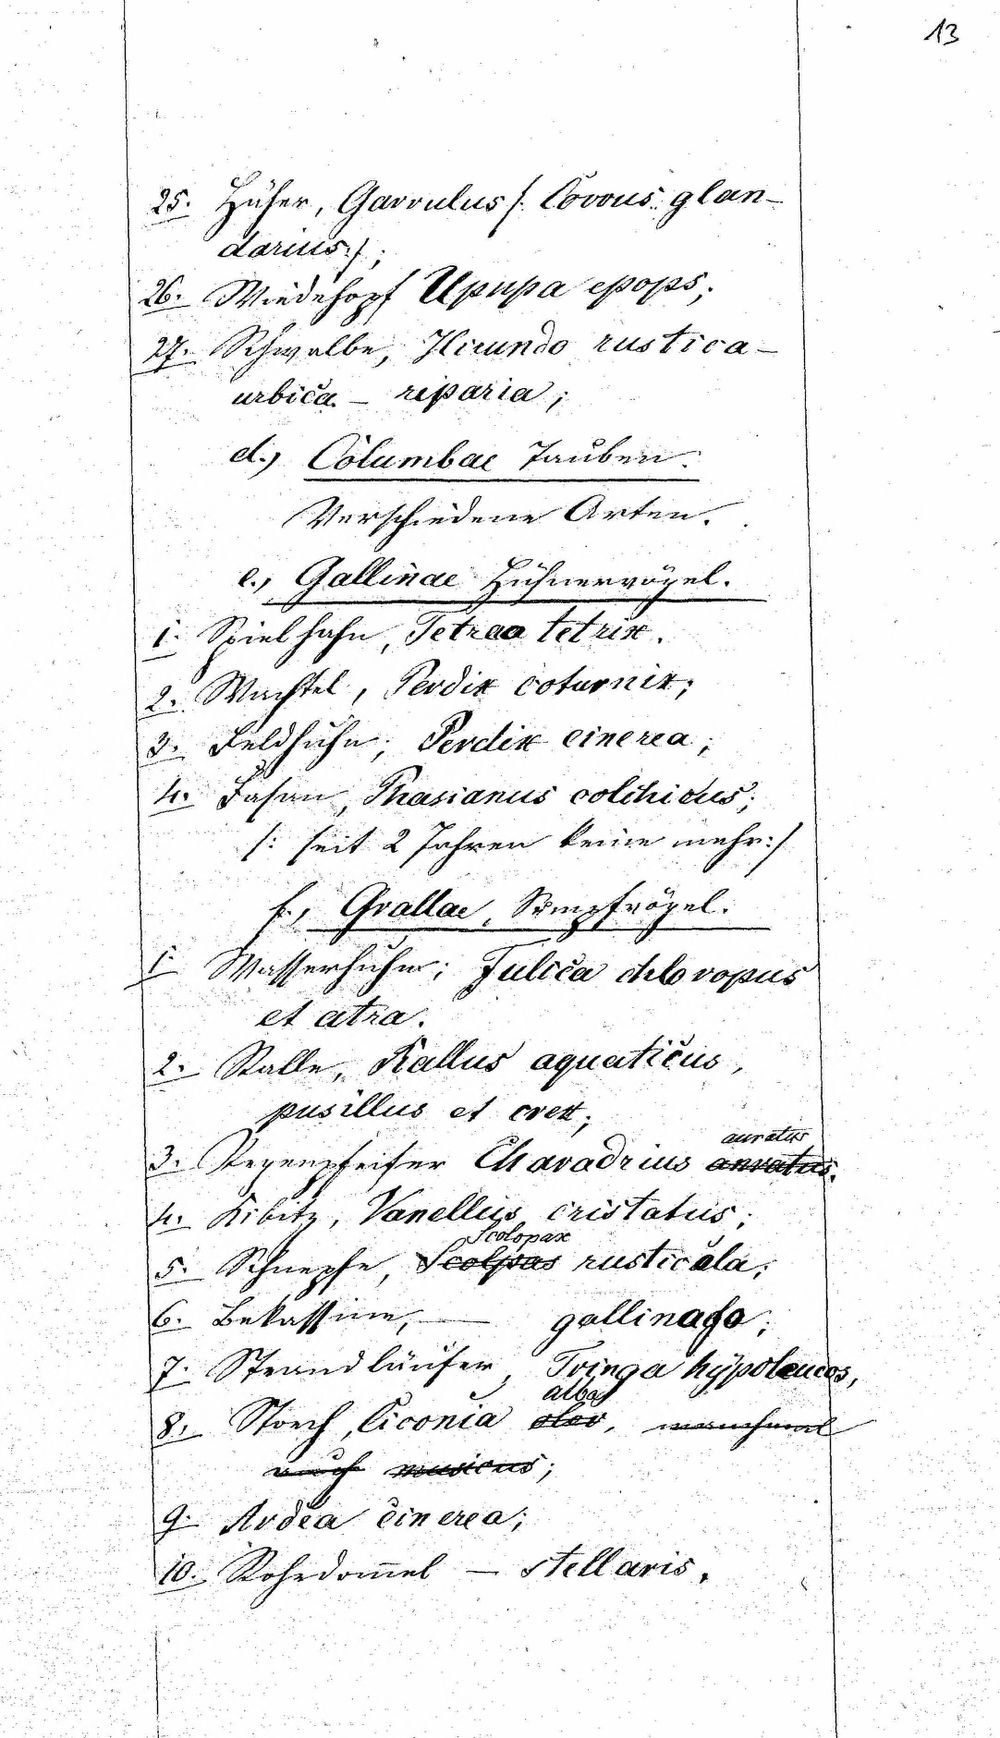 13
25. Häher, Garrulus /: Corvus glan-
darius :/;
26. Wiedehopf Upupa epops;
27. Schwalbe, Hirundo rustica -
urbica - riparia;
d., Columbae Tauben.
Verschiedene Arten.
e., Gallinae Hühnervögel.
1. Spielhahn, Tetrao tetrix.
2. Wachtel, Perdix coturnix;
3. Feldhuhn, Perdix cinerea;
4. Fasan, Phasianus colchicus;
/: seit 2 Jahren keine mehr :/
f., Grallae, Sumpfvögel.
1. Wasserhuhn; Fulica chloropus
et atra.
2. Ralle, Rallus aquaticus,
pusillus et crex;
auratus
3. Regenpfeifer Charadrius auratus.
4. Kibitz, Vanellus cristatus;
Scolopax
5. Schnepfe, Scolpas rusticola;
6. Bekassine, — gallinago;
7. Strandläufer, Tringa hypoleucos,
alba
8. Storch, Ciconia olor, manchmal
auch musicus;
9. Ardea cinerea;
10. Rohrdom̄el — stellaris.